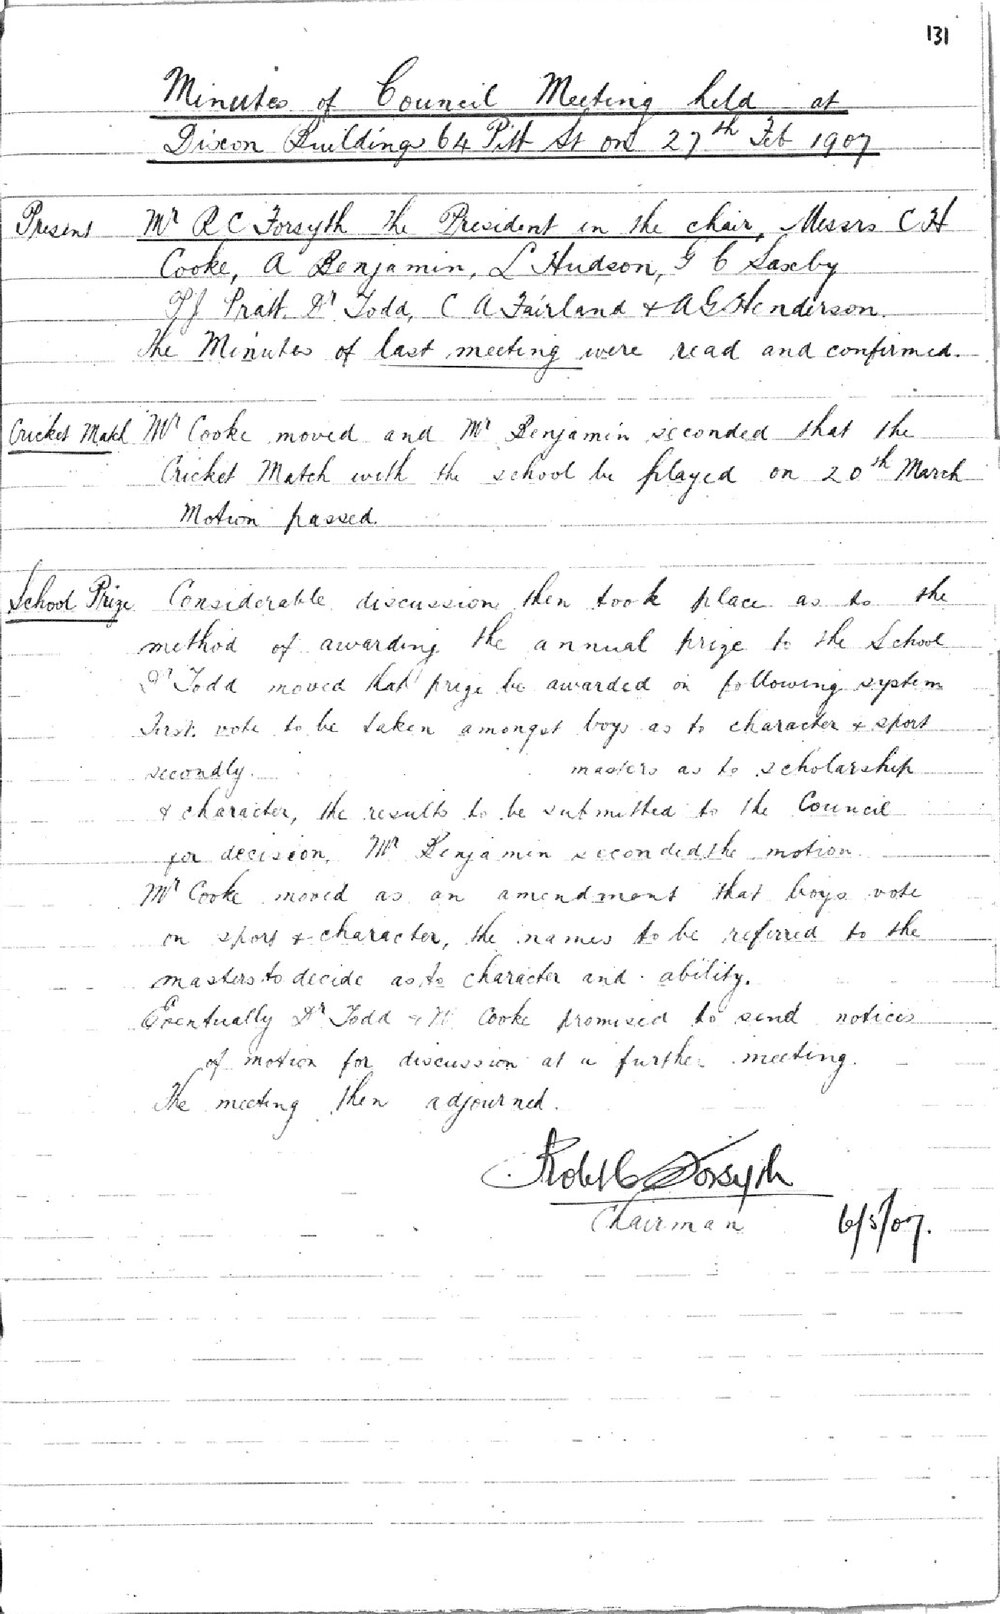 131
Minutes of Council Meeting held at
Dixon Buildings 64 Pitt St on 27th Feb 1907
Present Mr R C Forsyth the President in the chair, Messrs C H
Cooke, A Benjamin, L Hudson, G C Saxby
Pratt. Dr Todd, C A Fairland & A G Henderson.
The Minutes of last meeting were read and confirmed.
Cricket Match Mr Cooke moved and Mr Benjamin seconded that the
Cricket Match with the school be played on 20th March
Motion passed.
School Prize Considerable discussion then took place as to the
method of awarding the annual prize to the School
Dr Todd moved that prize be awarded on following system
First. vote to be taken amongst boys as to character & sport
secondly. masters as to scholarship
& character, the results to be submitted to the Council
for decision, Mr Benjamin seconded the motion
Mr Cooke moved as an amendment that boys vote
on sport & character, the names to be referred to the
masters to decide as to character and ability.
Eventually Dr Todd & Mr Cooke promised to send notices
of motion for discussion at a further meeting.
The meeting then adjourned.
Robt C Forsyth
Chairman 6/5/07.